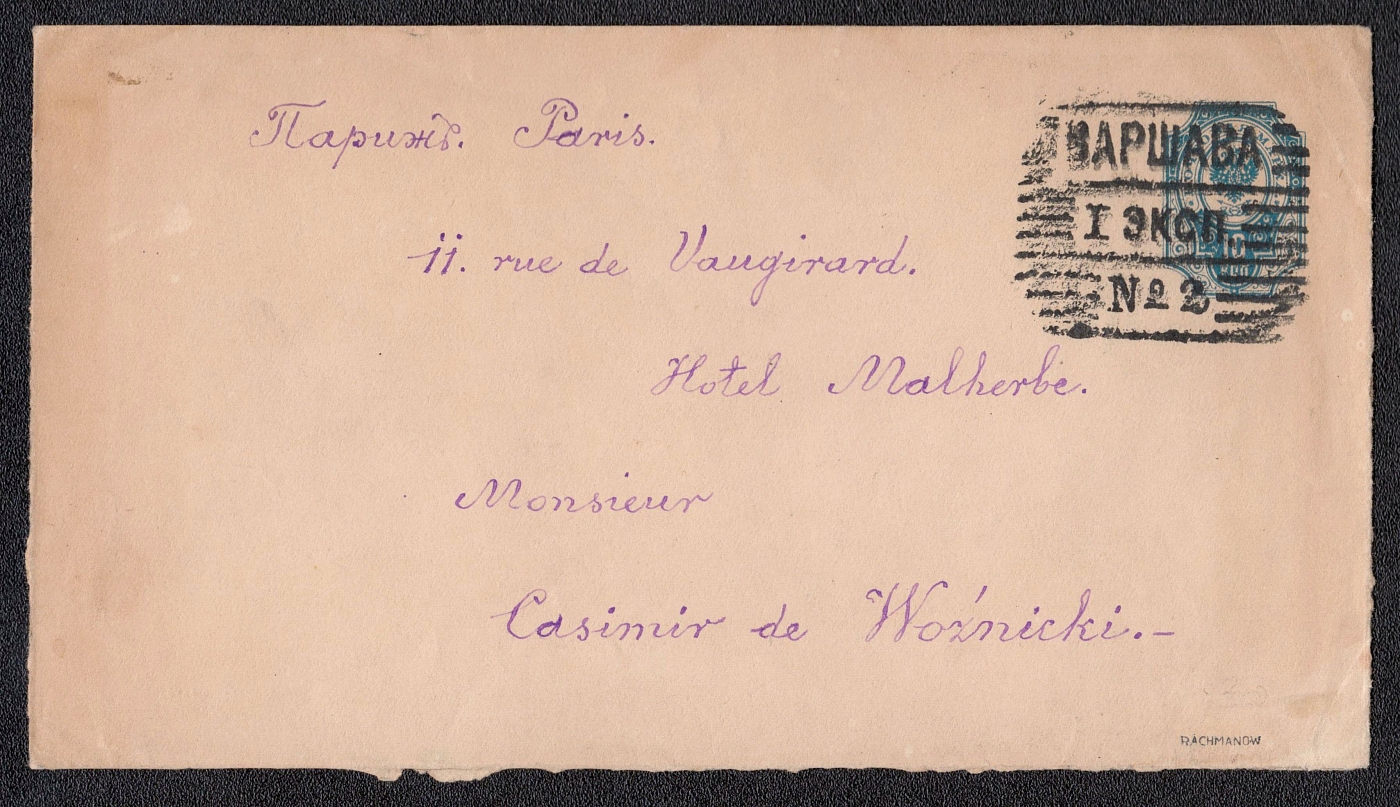 Парижъ. Paris.
11. rue de Vaugirard.
Hotel Malherbe.
Monsieur
Casimir de Woźnicki.-
ВАРШАВА
I ЭКСП.
№ 2
10
RACHMANOW